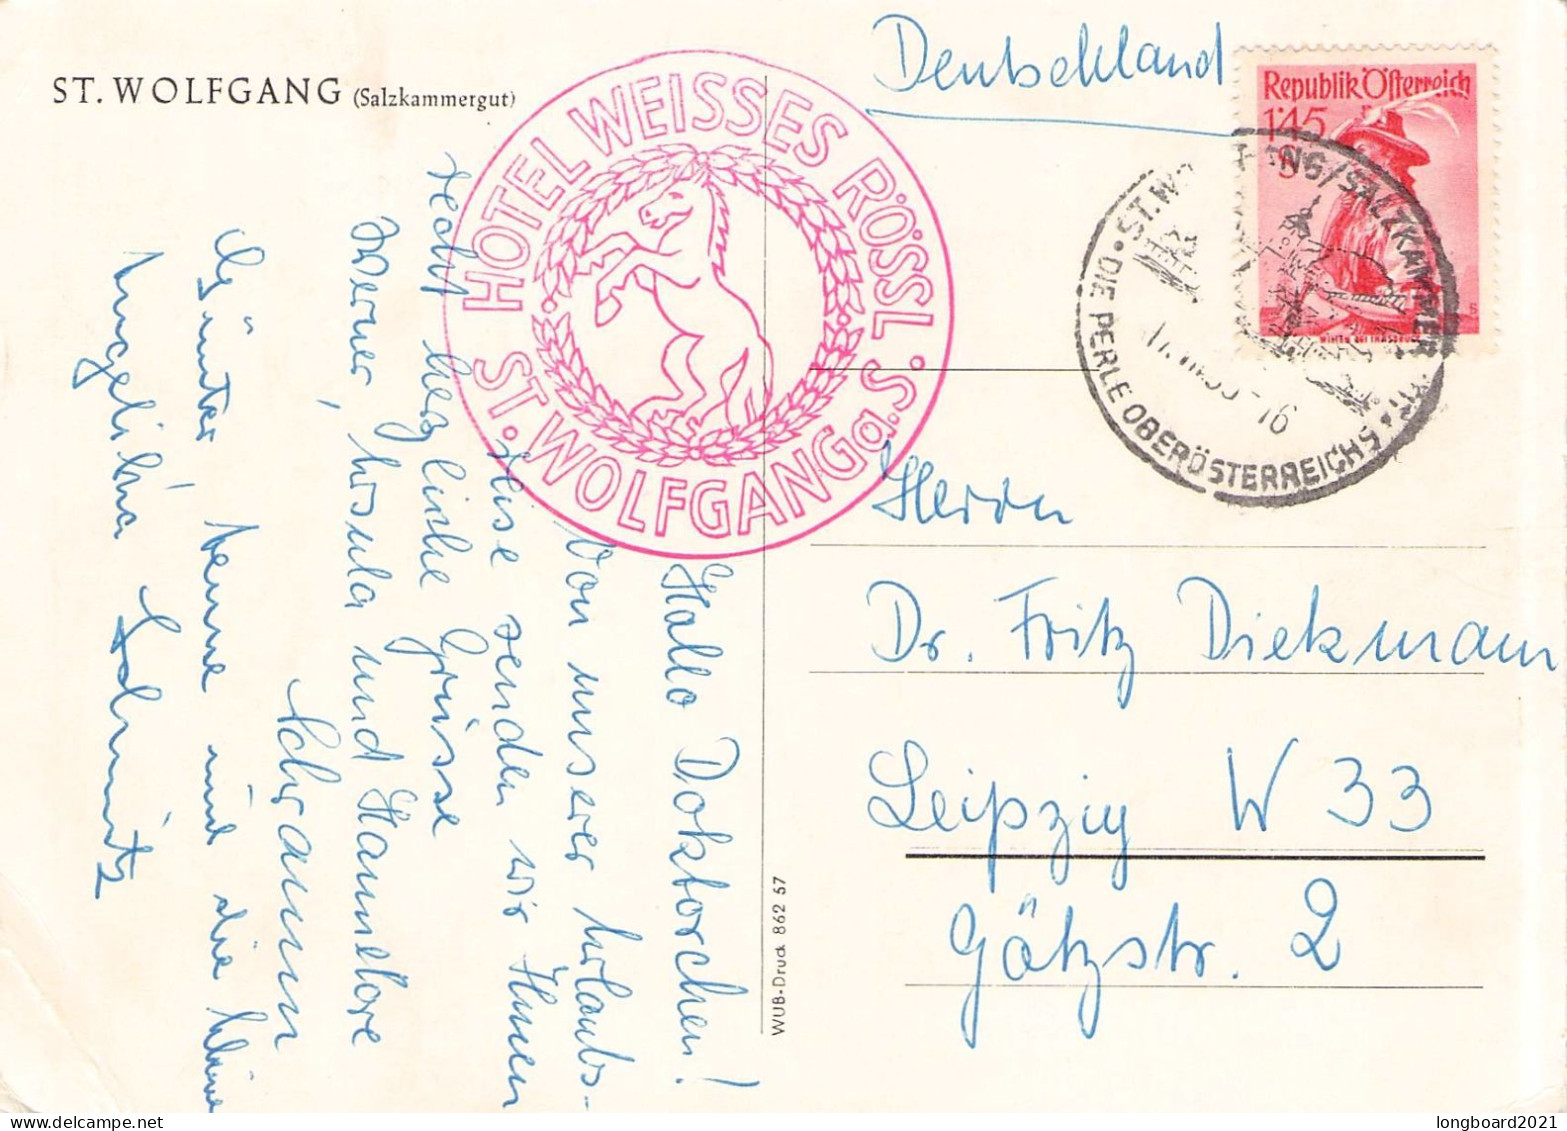 ST. WOLFGANG (Salzkammergut)
HOTEL WEISSES RÖSSL
ST. WOLFGANG a. S.
Deutschland
Republik Österreich
1'45
S
ST. WOLFGANG/SALZKAMMERGUT
DIE PERLE OBERÖSTERREICHS
-16
Hallo Doktorchen!
Von unserer Urlaubs-
reise senden wir Ihnen
recht herzliche Grüsse
Werner, Ursula und Hannelore
Schramm
Günter, Hanne und die kleine
Angelika Schmitz
Herrn
Dr. Fritz Diekmann
Leipzig W 33
Götzstr. 2
WUB-Druck 862 57
longboard2021